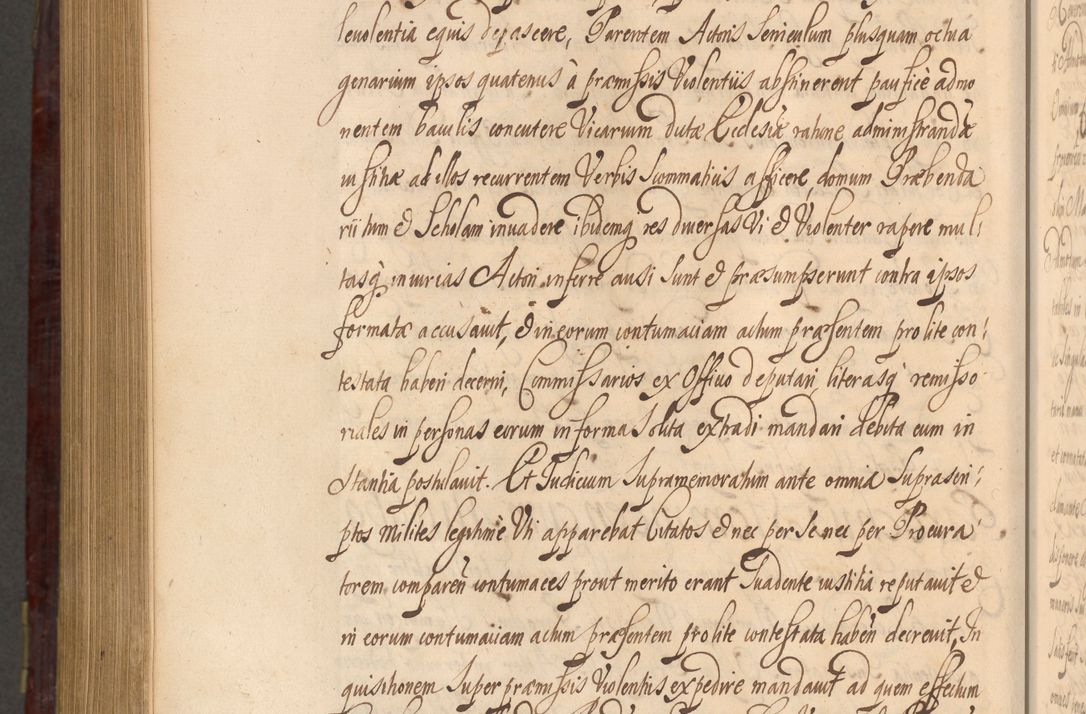 levolentia equis depascere, Parentem Actoris Seniculum plusquam octua
genarium ipsos quatenus à præmissis Violentiis abstinerent pacificè admo
nentem baculis concutere Vicarium dictæ Ecclesiæ ratione administrandæ
iustitiæ ad illos recurrentem Verbis Scommaticis afficere, domum Præbenda
riitum & Scholam invadere ibidemq res diversas Vi & Violenter rapere mul:
tasq iniurias Actori inferre ausi sunt & præsumpserunt contra ipsos
formatæ accusavit, & in eorum contumaciam actum præsentem pro lite con:
testata haberi decerni, Commissarios ex Officio deputari literasq remisso
riales in personas eorum in forma Solita extradi mandari debita cum in
Stantia postulavit. Et Judicium Supramemoratum ante omnia Suprascri:
ptos Milites legitimè Uti apparebat Citatos & nec per Se nec per Procura
torem comparen contumaces prout merito erant Suadente iustitia reputavit &
in eorum contumaciam actum præsentem pro lite contestata haberi decrevit, In
quisitionem Super præmissis Violentiis expedire mandavit ad quem effectum